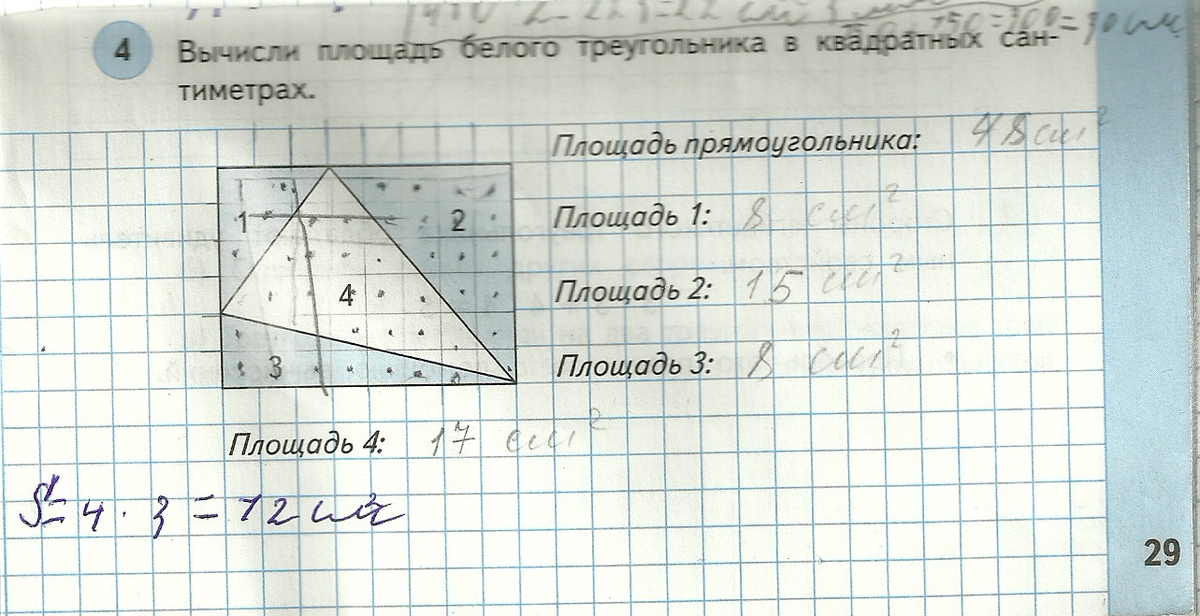 4 Вычисли площадь белого треугольника в квадратных сан-
тиметрах.
Площадь прямоугольника: 48 см²
1 2
Площадь 1: 8 см²
4
Площадь 2: 15 см²
3
Площадь 3: 8 см²
Площадь 4: 17 см²
S = 4 · 3 = 12 см²
29